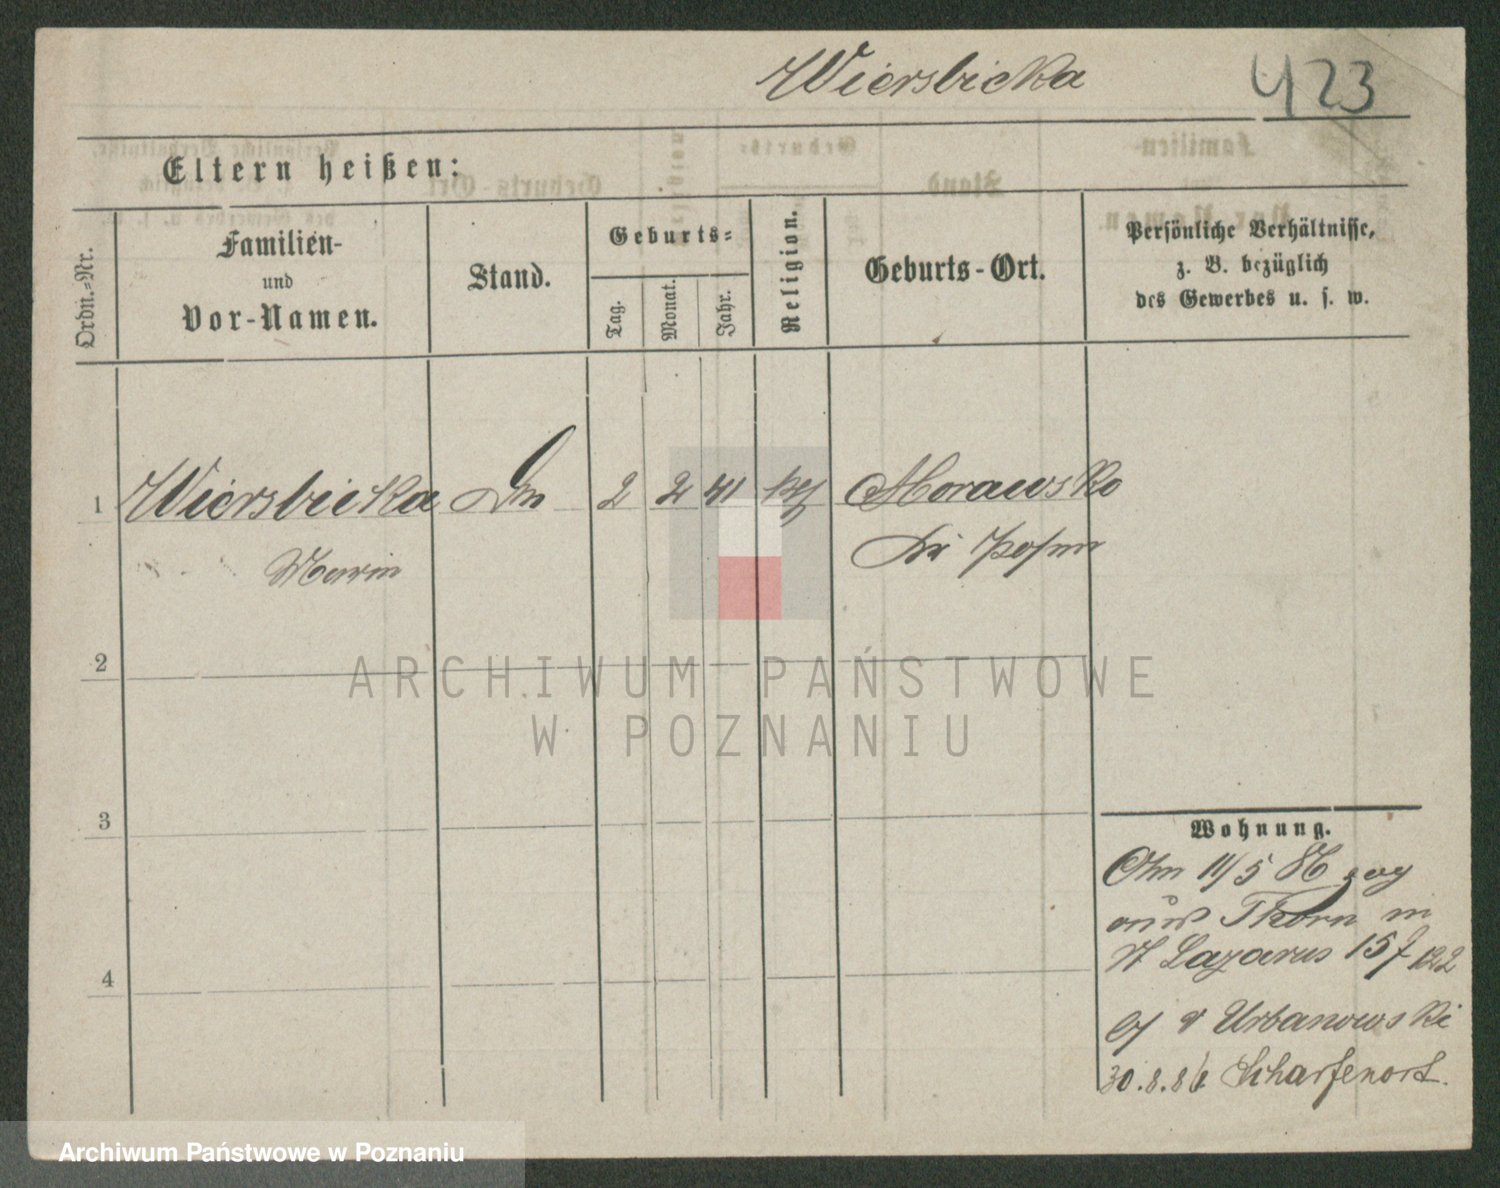 Wiersbicka
423
Eltern heißen:
Ordn.-Nr.
Familien-
und
Vor-Namen.
Stand.
Geburts-
Tag.
Monat.
Jahr.
Religion.
Geburts-Ort.
Persönliche Verhältnisse,
z. B. bezüglich
des Gewerbes u. s. w.
1 Wiersbicka 2 2 41 Morawsko
Posen
2
3
4
Wohnung.
11/5
aus Thorn in
St Lazarus 157
v Urbanowski
30.8.86 Scharfenort.
ARCHIWUM PAŃSTWOWE
W POZNANIU
Archiwum Państwowe w Poznaniu